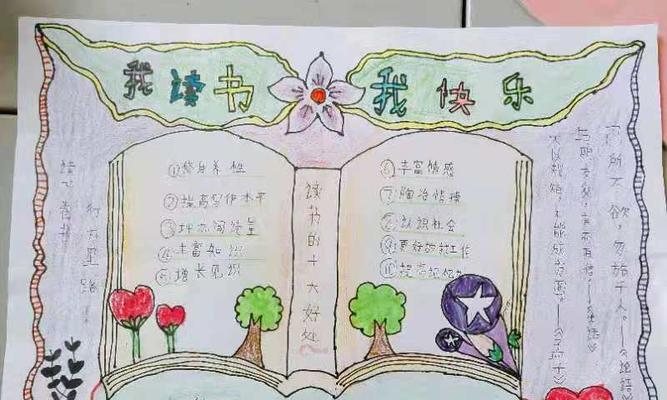 我读书 我快乐
①修身养性
②提高写作水平
③增加阅读量
④丰富知识
⑤增长见识
读书的十大好处
⑥丰富情感
⑦陶冶情操
⑧认识社会
⑨更好的就工作
⑩提高记忆力
己所不欲，勿施于人。——《论语》
与朋友交，言而有信。——《论语》
不以规矩，不能成方圆。——《孟子》
读万卷书
行万里路